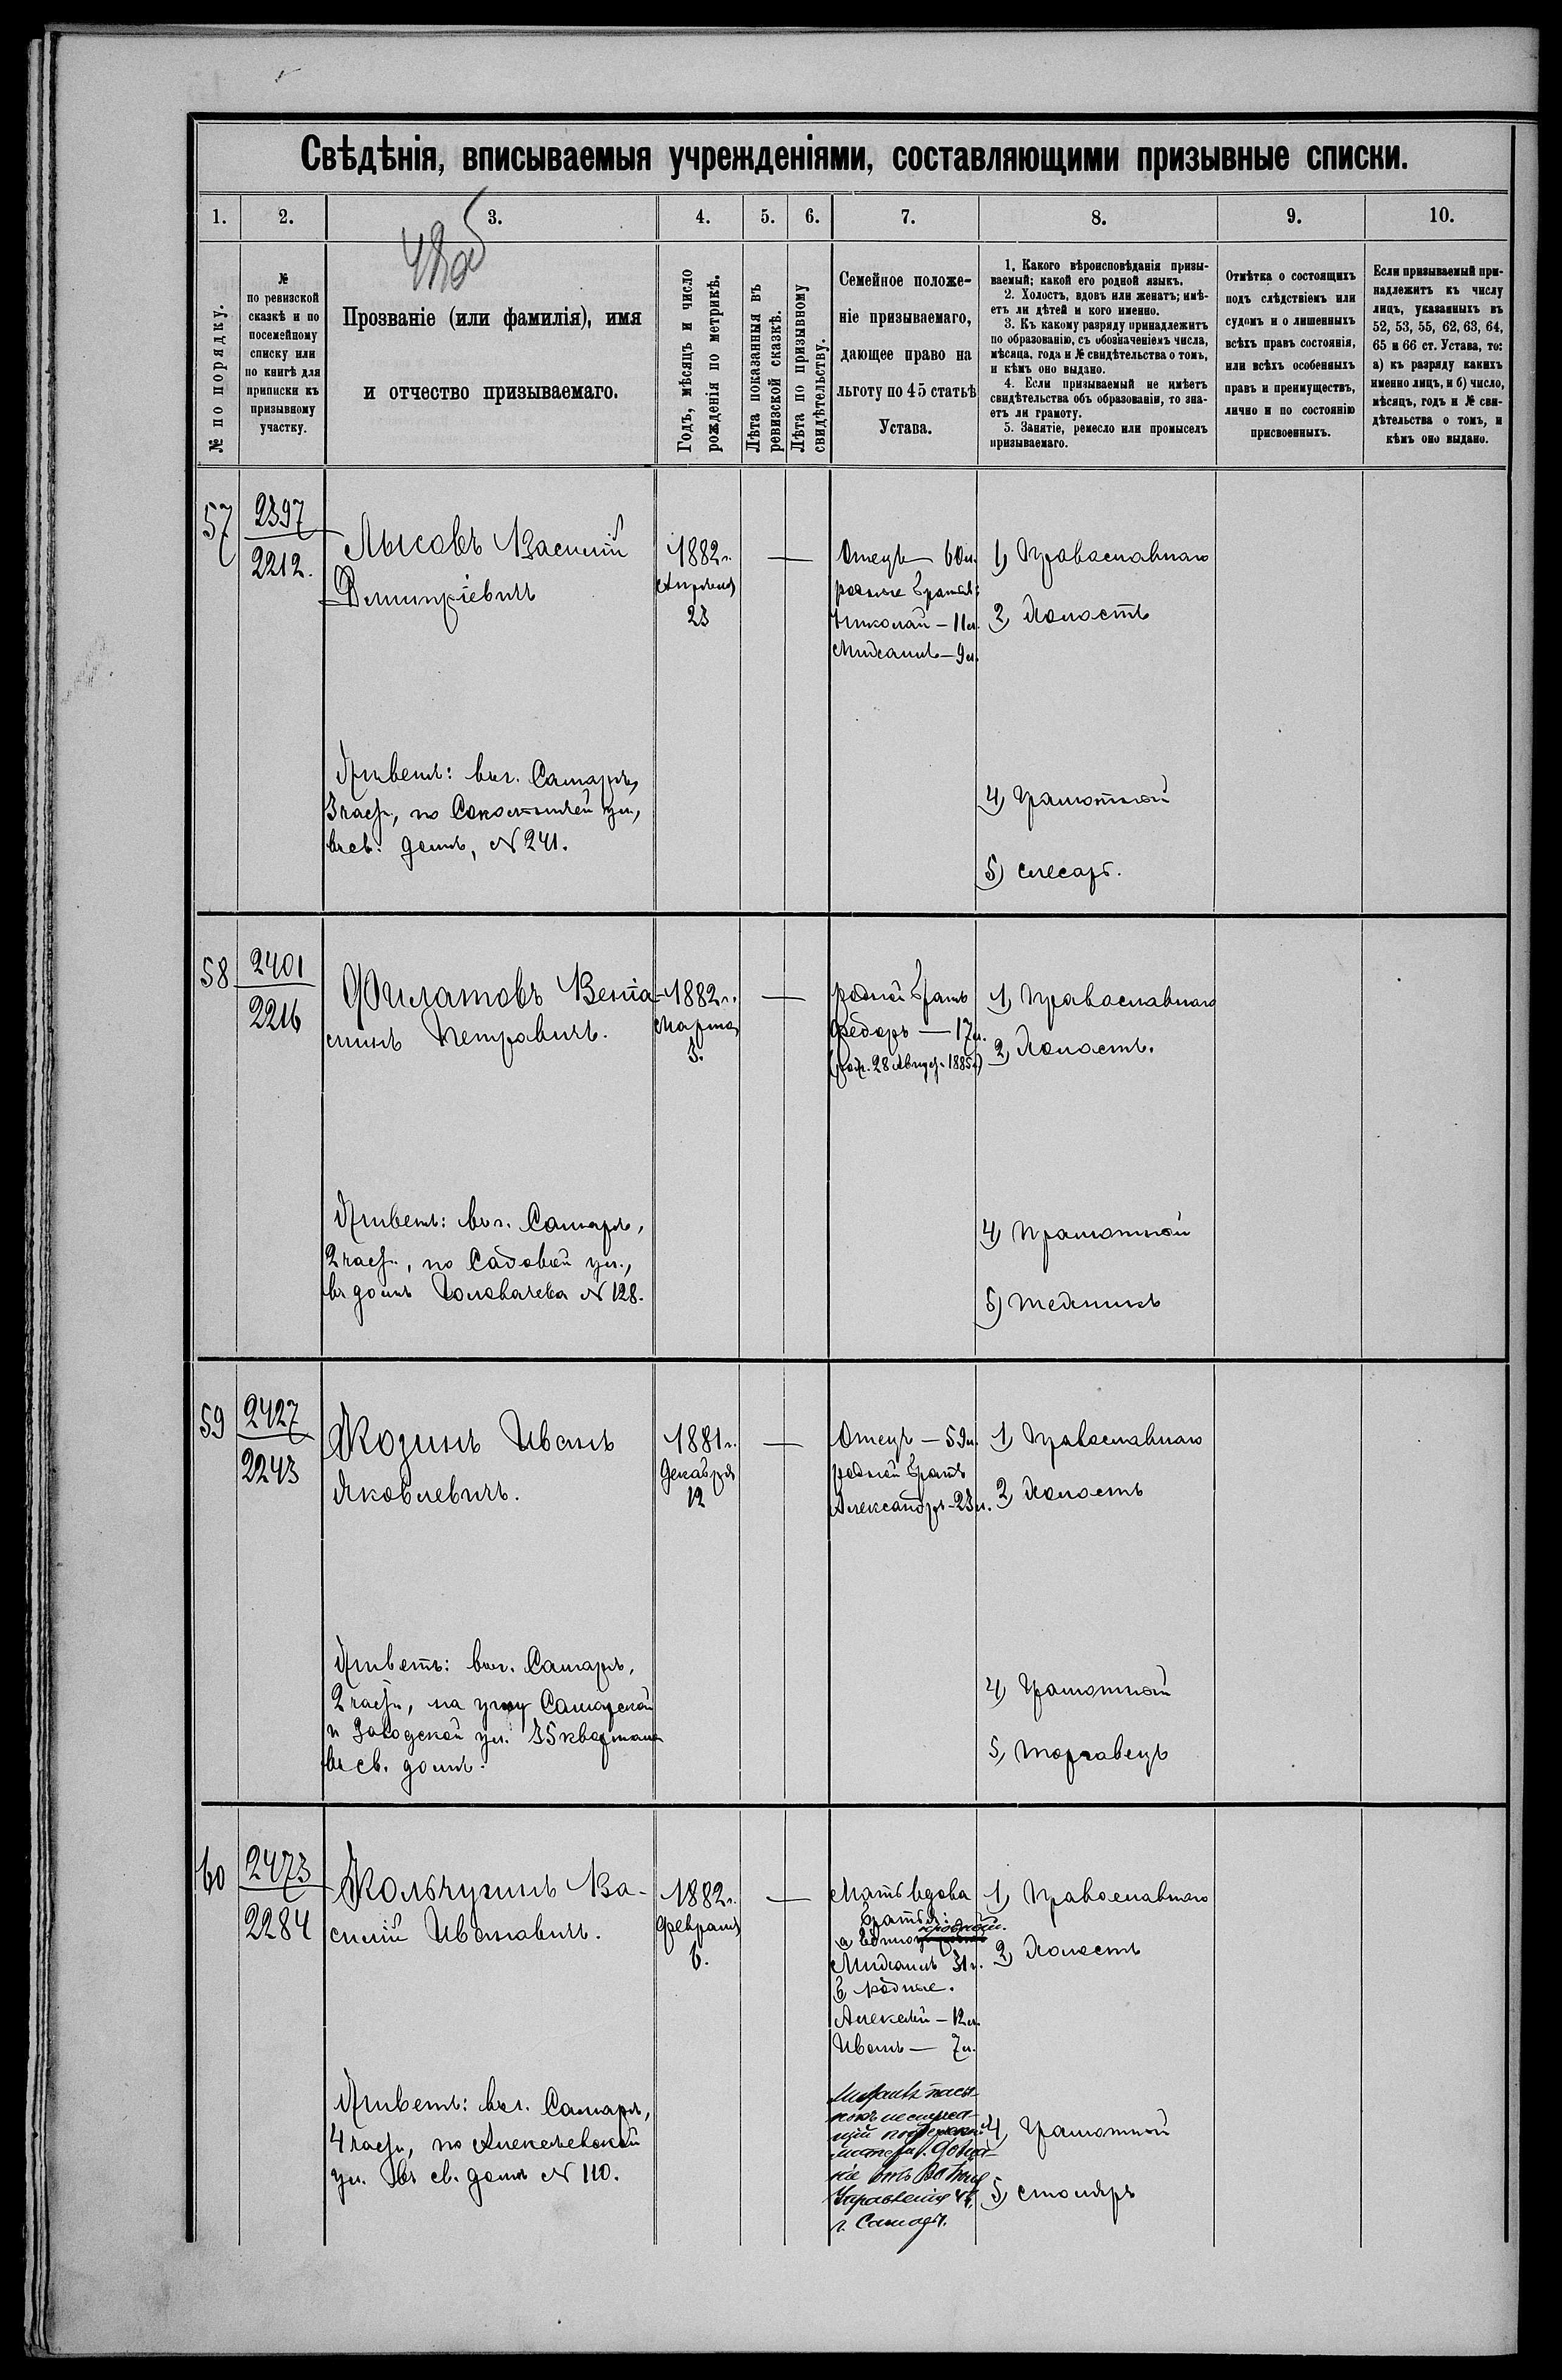 Свѣдѣнія, вписываемыя учрежденіями, составляющими призывные списки.
1. 2. 3. 4. 5. 6. 7. 8. 9. 10.
№ по порядку.
№
по ревизской
сказкѣ и по
посемейному
списку или
по книгѣ для
приписки къ
призывному
участку.
Прозваніе (или фамилія), имя
и отчество призываемаго.
Годъ, мѣсяцъ и число
рожденія по метрикѣ.
Лѣта показанныя въ
ревизской сказкѣ.
Лѣта по призывному
свидѣтельству.
Семейное положе-
ніе призываемаго,
дающее право на
льготу по 45 статьѣ
Устава.
1. Какого вѣроисповѣданія призы-
ваемый; какой его родной языкъ.
2. Холостъ, вдовъ или женатъ; имѣ-
етъ ли дѣтей и кого именно.
3. Къ какому разряду принадлежитъ
по образованію, съ обозначеніемъ числа,
мѣсяца, года и № свидѣтельства о томъ,
и кѣмъ оно выдано.
4. Если призываемый не имѣетъ
свидѣтельства объ образованіи, то зна-
етъ ли грамоту.
5. Занятіе, ремесло или промыселъ
призываемаго.
Отмѣтка о состоящихъ
подъ слѣдствіемъ или
судомъ и о лишенныхъ
всѣхъ правъ состоянія,
или всѣхъ особенныхъ
правъ и преимуществъ,
лично и по состоянію
присвоенныхъ.
Если призываемый при-
надлежитъ къ числу
лицъ, указанныхъ въ
52, 53, 55, 62, 63, 64,
65 и 66 ст. Устава, то:
а) къ разряду какихъ
именно лицъ, и б) число,
мѣсяцъ, годъ и № сви-
дѣтельства о томъ, и
кѣмъ оно выдано.
57
2397
2212.
Лысовъ Василій
Димитріевичъ
1882 г.
Апрѣля
23
—
Отецъ — 60 л.
родные братья:
Николай — 11 л.
Михаилъ — 9 л.
1) Православнаго
2) Холостъ
Живетъ: въ г. Самарѣ,
3 част., по Сокольничей ул.,
въ св: домѣ, № 241.
4) Грамотной
5) слесарь.
58
2401
2216
Филатовъ Веніа-
минъ Петровичъ.
1882 г.
Марта
3.
—
родной братъ
Ѳедоръ — 17 л.
(род. 28 Август. 1885 г)
1) Православнаго
2) Холостъ.
Живетъ: въ г. Самарѣ,
2 част., по Садовой ул.,
въ домѣ Головачева № 128.
4) Грамотной
5) жестникъ
59
2427
2243
Козинъ Иванъ
Яковлевичъ.
1881 г.
Декабря
12
—
Отецъ — 59 л.
родной братъ
Александръ - 23 л.
1) Православнаго
2) Холостъ
Живетъ: въ г. Самарѣ,
2 част., на углу Самарской
и Заводской ул. 35 квартала
въ св. домѣ.
4) Грамотной
5) торговецъ
60
2473
2284
Кольчугинъ Ва-
силій Ивановичъ.
1882 г.
Февраля
6.
—
Мать вдова
братья:
Михаилъ 31 г.
б) родные.
Алексѣй — 12 л.
Иванъ — 7 л.
1) Православнаго
2) Холостъ
Живетъ: въ г. Самарѣ,
4 част., по Алексѣевской
ул. въ св. домѣ № 110.
Управленія 4 ч.
г. Самары.
4) Грамотной
5) столяръ